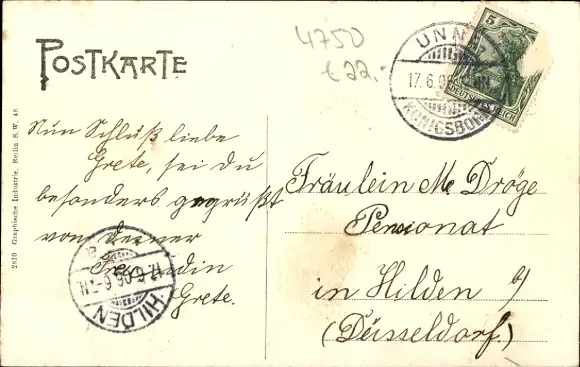 POSTKARTE
4750
€ 22.-
UNNA
17.6.06
KÖNIGSBORN
5
DEUTSCHES REICH
Nun Schluß liebe
Grete, sei du
besonders gegrüßt
von deiner
Freundin
Grete.
Fräulein M. Dröge
Pensionat
in Hilden b/
(Düsseldorf.)
17.6.06.6-7N
HILDEN
2810 Graphische Industrie, Berlin S.W. 48